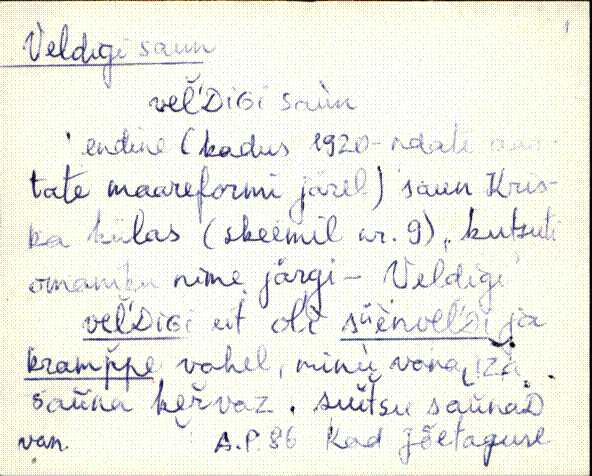 1
Veldigi saun
vel'DiGi saùn
'endine (kadus 1920-ndate aas-
tate maareformi järel) saun Kris-
ka külas (skeemil nr. 9), kutsuti
omaniku nime järgi – Veldigi'
vel'DiGi eit oli sūènvel'Di ja
kramppe vahel, minù vana izä
saūna kervaz. suitsu saūnaD
van. A.P. 86 Kad Jõetaguse